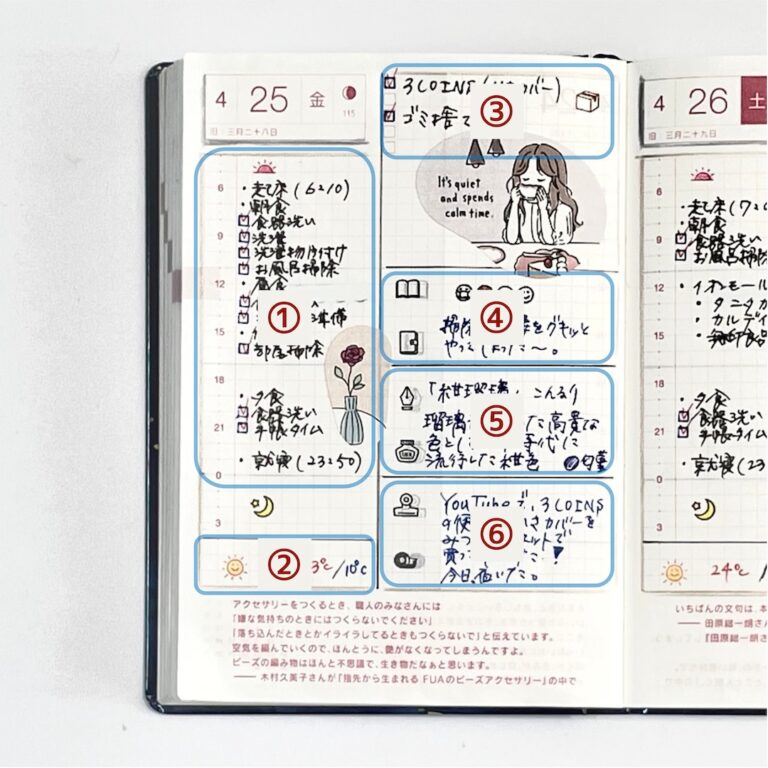 4 25 金
115
旧 三月二十八日
6
・起床(6:10)
・朝食
食器洗い
9
洗濯
洗濯物片付け
お風呂掃除
12
・昼食
①
準備
15
部屋掃除
18
・夕食
食器洗い
21
手帳タイム
・就寝(23:50)
0
3
② 3℃/10℃
3COINS(カバー)
③
ゴミ捨て
It's quiet
and spends
calm time.
④
掃除 をグキッと
や
⑤
「紺瑠璃」 こんるり
瑠璃 た高貴な
色とし 時代に
流行した紺色
⑥
YouTubeで、3COINS
の便 さカバーを
みつ セットで
買っ !
今日、届いた。
アクセサリーをつくるとき、職人のみなさんには
「嫌な気持ちのときにはつくらないでください」
「落ち込んだときとかイライラしてるときもつくらないで」と伝えています。
空気を編んでいくので、ほんとうに、艶がなくなってしまうんですよ。
ビーズの編み物はほんと不思議で、生き物だなぁと思います。
── 木村久美子さんが『指先から生まれる FUAのビーズアクセサリー』の中で
4 26 土
旧 三月二十九日
6
・起床(7:
・朝食
9
食器洗い
お風呂掃除
12
・イオンモール
・タニタカ
・カルディ
15
・無印良品
18
・夕食
食器洗い
21
手帳タイム
・就寝(23
0
3
24℃/1
いちばんの文句は、本
── 田原総一朗さん
『田原総一朗